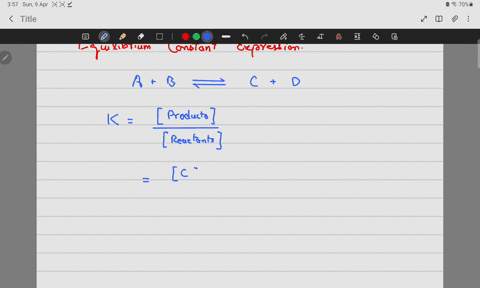 3:57 Sun, 9 Apr
70%
Title
Equilibrium Constant Expression.
A + B ⇌ C + D
K = [Products]
[Reactants]
= [C